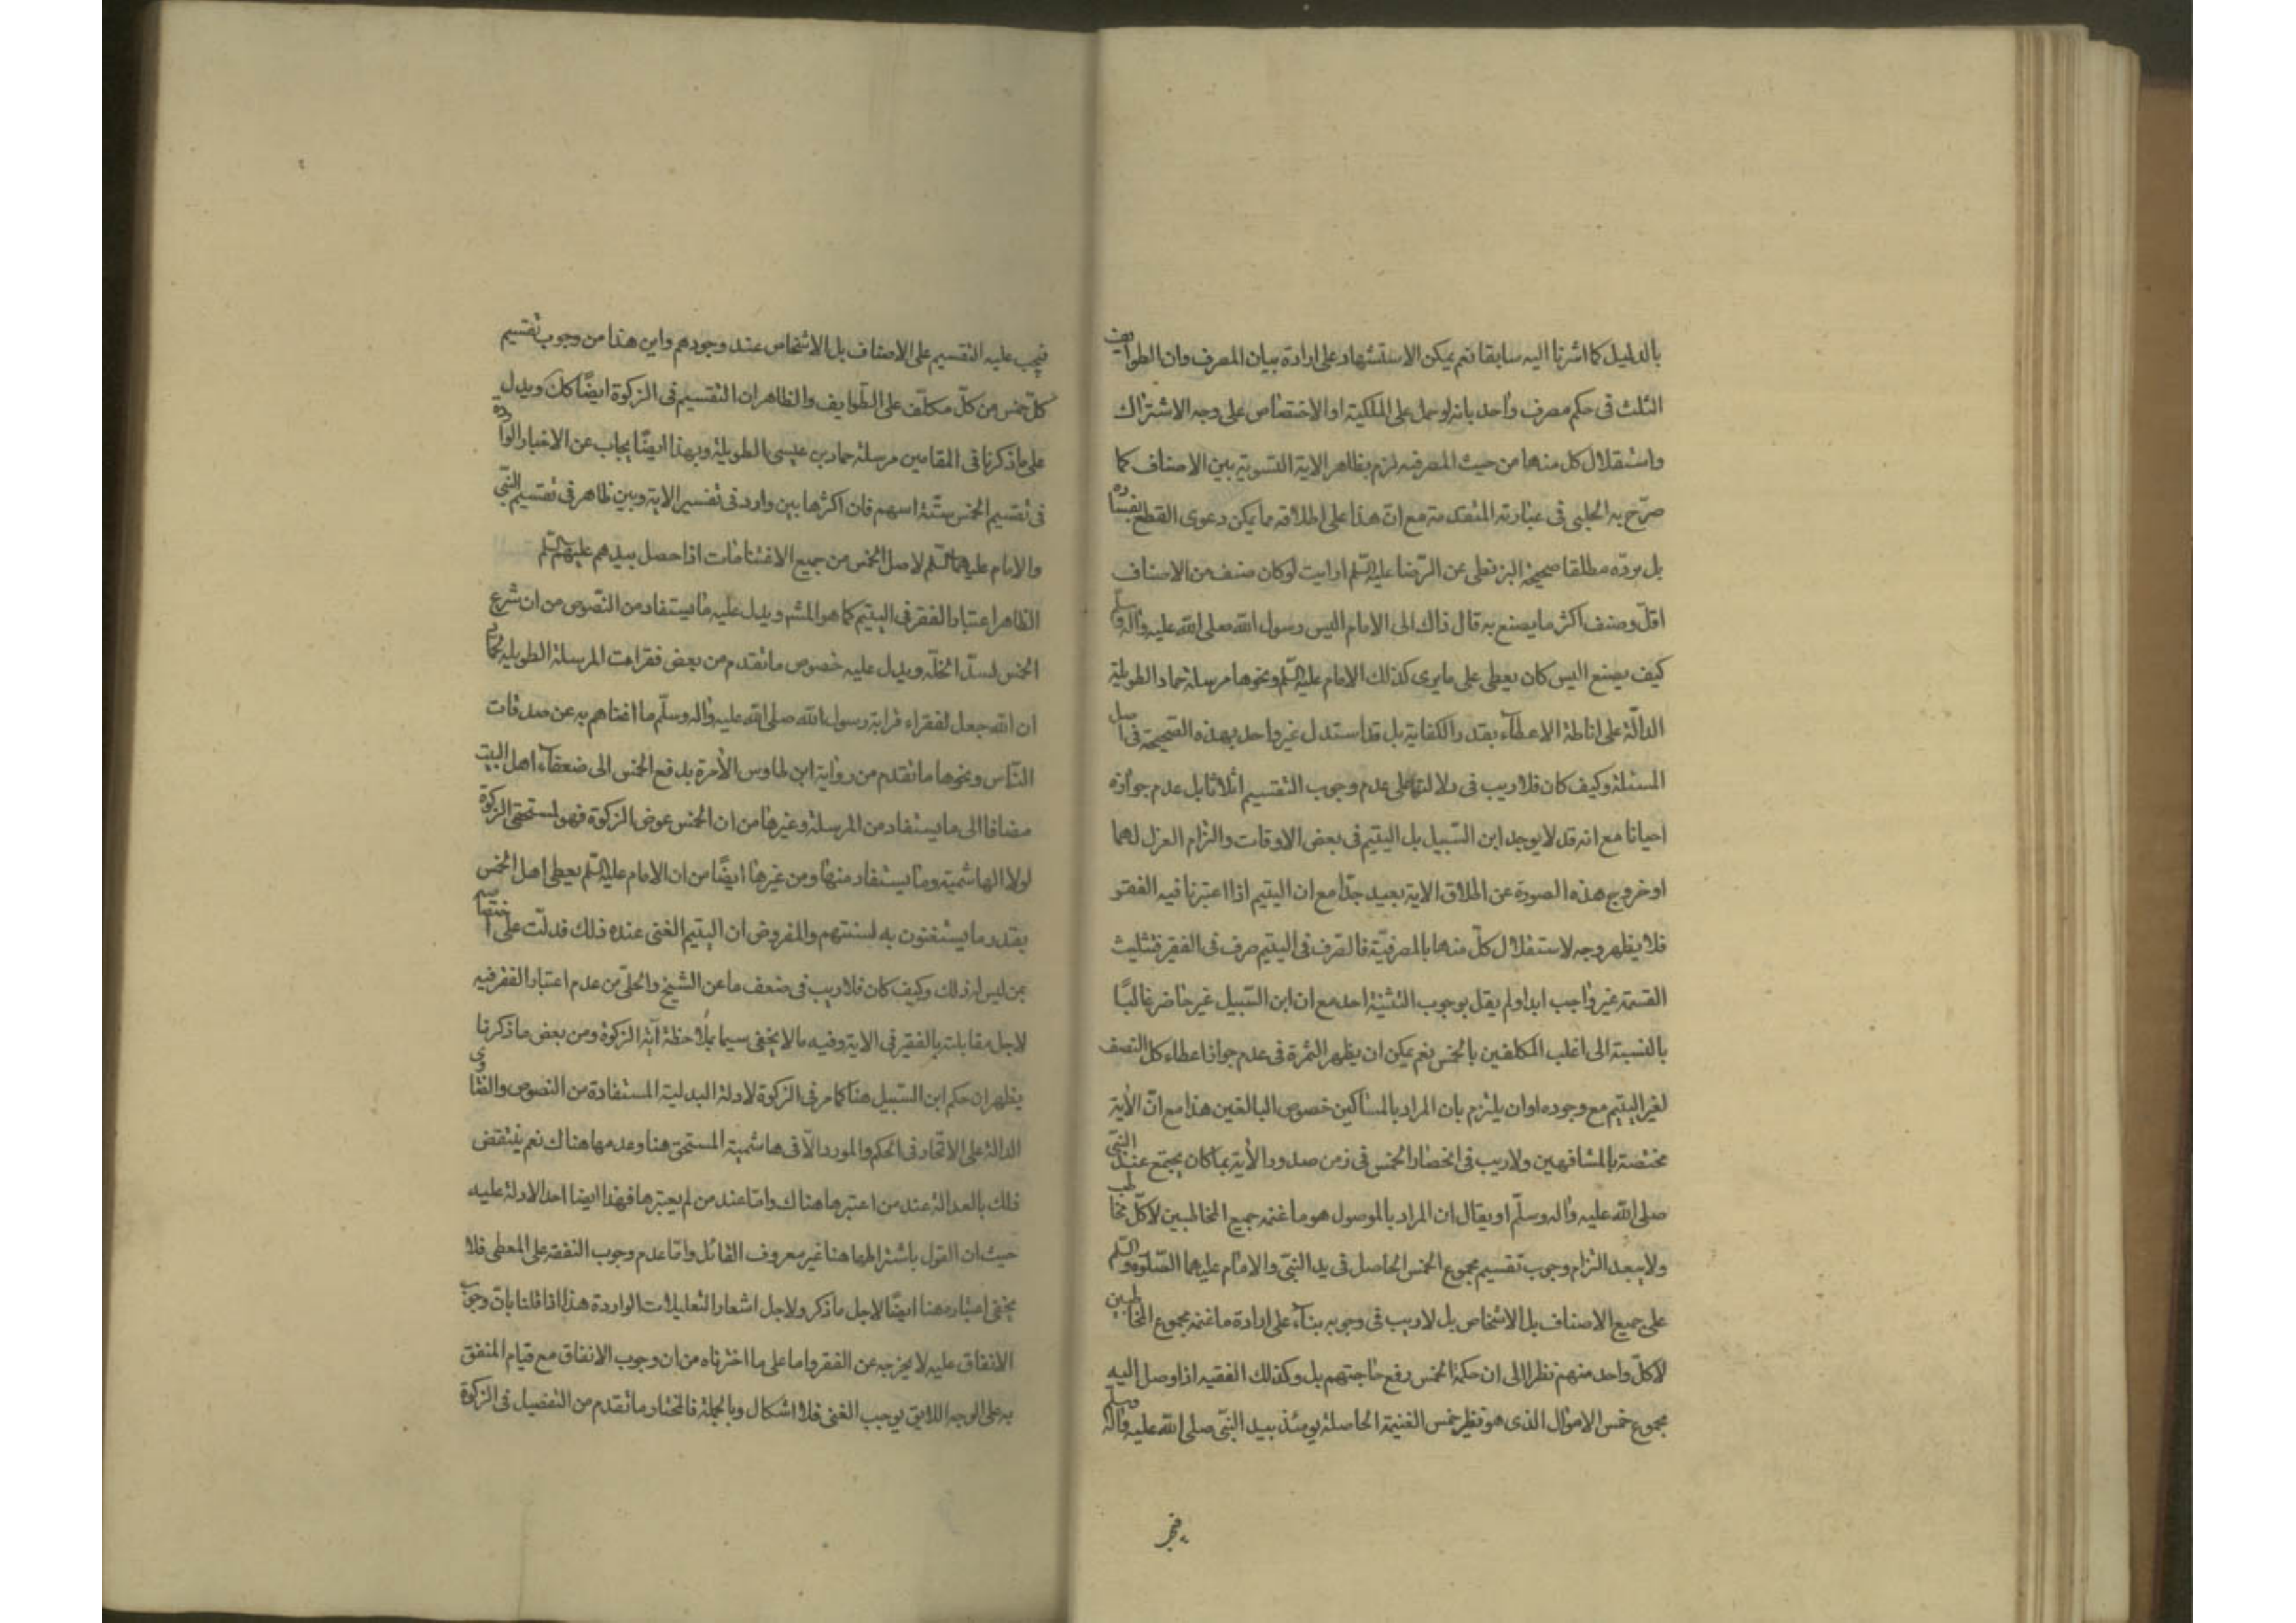 بالدليل كما اشرنا اليه سابقا نعم يمكن الاستشهاد على ارادة بيان المصرف وان الطوايف
الثلث فى حكم مصرف واحد بانه لو حمل على الملكية او الاختصاص على وجه الاشتراك
واستقلال كل منها من حيث المصرفيه لزم بظاهر الاية التسوية بين الاصناف كما
صرّح به الحلبى فى عبارته المتقدمة مع انّ هذا على اطلاقه مما يمكن دعوى القطع بفساده
بل يردّه مطلقا صحيحة البزنطى عن الرّضا عليه السّلم ارايت لو كان صنف من الاصناف
اقلّ وصنف اكثر ما يصنع به قال ذاك الى الامام اليس رسول الله صلى الله عليه واله وسلّم
كيف يصنع اليس كان يعطى على ما يرى كذلك الامام عليه السّلم ونحوها مرسلة حماد الطويلة
الدالّة على اناطة الاعطاء بقدر الكفاية بل قد استدل غير واحد بهذه الصّحيحة فى اصل
المسئلة وكيف كان فلا ريب فى دلالتها على عدم وجوب التقسيم اثلاثا بل عدم جوازه
احيانا مع انه قد لا يوجد ابن السّبيل بل اليتيم فى بعض الاوقات والتزام العزل لهما
او خروج هذه الصورة عن اطلاق الاية بعيد جدّا مع ان اليتيم اذا اعتبرنا فيه الفقر
فلا يظهر وجه لاستقلال كلّ منهما بالمصرفيّة فالصّرف فى اليتيم صرف فى الفقير فتثليث
القسمة غير واجب ابدا ولم يقل بوجوب التثنية احد مع ان ابن السّبيل غير حاضر غالبًا
بالنسبة الى اغلب المكلفين بالخمس نعم يمكن ان يظهر الثمرة فى عدم جواز اعطاء كل النصف
لغير اليتيم مع وجوده او ان يلتزم بان المراد بالمساكين خصوص البالغين هذا مع انّ الاية
مختصة بالمشافهين ولا ريب فى انحصار الخمس فى زمن صدور الاية بما كان يجتمع عند النبّى
صلى الله عليه واله وسلّم او يقال ان المراد بالموصول هو ما غنمه جميع المخاطبين لا كلّ مخاطب
ولا يبعد التزام وجوب تقسيم مجموع الخمس الحاصل فى يد النبّى والامام عليهما الصّلوة والسّلم
على جميع الاصناف بل الاشخاص بل لا ريب فى وجوبه بناء على ارادة ما غنمه مجموع المخاطبين
لا كلّ واحد منهم نظرا الى ان حكمة الخمس رفع حاجتهم بل وكذلك الفقيه اذا وصل اليه
مجموع خمس الاموال الذى هو نظير خمس الغنيمة الحاصلة يومئذ بيد النبّى صلى الله عليه واله وسلم
فيجب عليه التقسيم على الاصناف بل الاشخاص عند وجودهم واين هذا من وجوب تقسيم
كلّ خمس من كلّ مكلّف على الطّوايف والظاهر ان التقسيم فى الزكوة ايضًا كك ويدل
على ما ذكرنا فى المقامين مرسلة حماد بن عيسى الطويلة وبهذا ايضًا يجاب عن الاخبار الواردة
فى تقسيم الخمس ستّة اسهم فان اكثرها بين وارد فى تفسير الاية وبين ظاهر فى تقسيم النبّى
والامام عليهما السّلم لاصل الخمس من جميع الاغتنامات اذا حصل بيدهم عليهم السّلم
الظاهر اعتبار الفقر فى اليتيم كما هو المشم ويدل عليه ما يستفاد من النّصوص من ان شرع
الخمس لسدّ الخلّه ويدل عليه خصوص ما تقدم من بعض فقرات المرسلة الطويلة لحماد
ان الله جعل لفقراء قرابة رسول الله صلى الله عليه واله وسلّم ما اغناهم به عن صدقات
النّاس ونحوها ما تقدم من رواية ابن طاوس الامرة بدفع الخمس الى ضعفاء اهل البيت
مضافا الى ما يستفاد من المرسلة وغيرها من ان الخمس عوض الزكوة فهو لمستحقى الزكوة
لولا الهاشمية وما يستفاد منها ومن غيرها ايضًا من ان الامام عليه السّلم يعطى اهل الخمس
بقدر ما يستغنون به لسنتهم والمفروض ان اليتيم الغنى عنده ذلك فدلّت على اختصاصه
بمن ليس له ذلك وكيف كان فلا ريب فى ضعف ما عن الشيخ والحلّى من عدم اعتبار الفقر فيه
لاجل مقابلته بالفقير فى الاية وفيه ما لا يخفى سيما بملاحظة اية الزكوة ومن بعض ما ذكرنا
يظهر ان حكم ابن السّبيل هنا كما مر فى الزكوة لادلة البدلية المستفادة من النصوص والفتاوى
الدالة على الاتّحاد فى الحكم والمورد الّا فى هاشمية المستحق هنا وعدمها هناك نعم ينتقض
ذلك بالعدالة عند من اعتبرها هناك وامّا عند من لم يعتبرها فهذا ايضا احد الادلة عليه
حيث ان القول باشتراطها هنا غير معروف القائل وامّا عدم وجوب النفقة على المعطى فلا
يخفى اعتباره هنا ايضًا لاجل ما ذكر ولاجل اشعار التعليلات الواردة هذا اذا قلنا بانّ وجوب
الانفاق عليه لا يخرجه عن الفقر واما على ما اخترناه من ان وجوب الانفاق مع قيام المنفق
به على الوجه اللايق يوجب الغنى فلا اشكال وبالجملة فالمختار ما تقدم من التفصيل فى الزكوة
فيجب